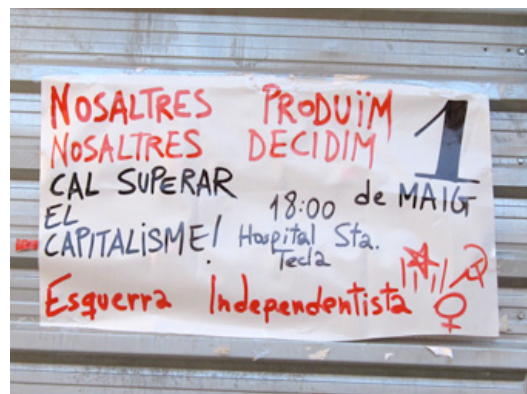 NOSALTRES PRODUÏM
NOSALTRES DECIDIM
1
de MAIG
CAL SUPERAR
EL
CAPITALISME!
18:00
Hospital Sta.
Tecla
Esquerra Independentista